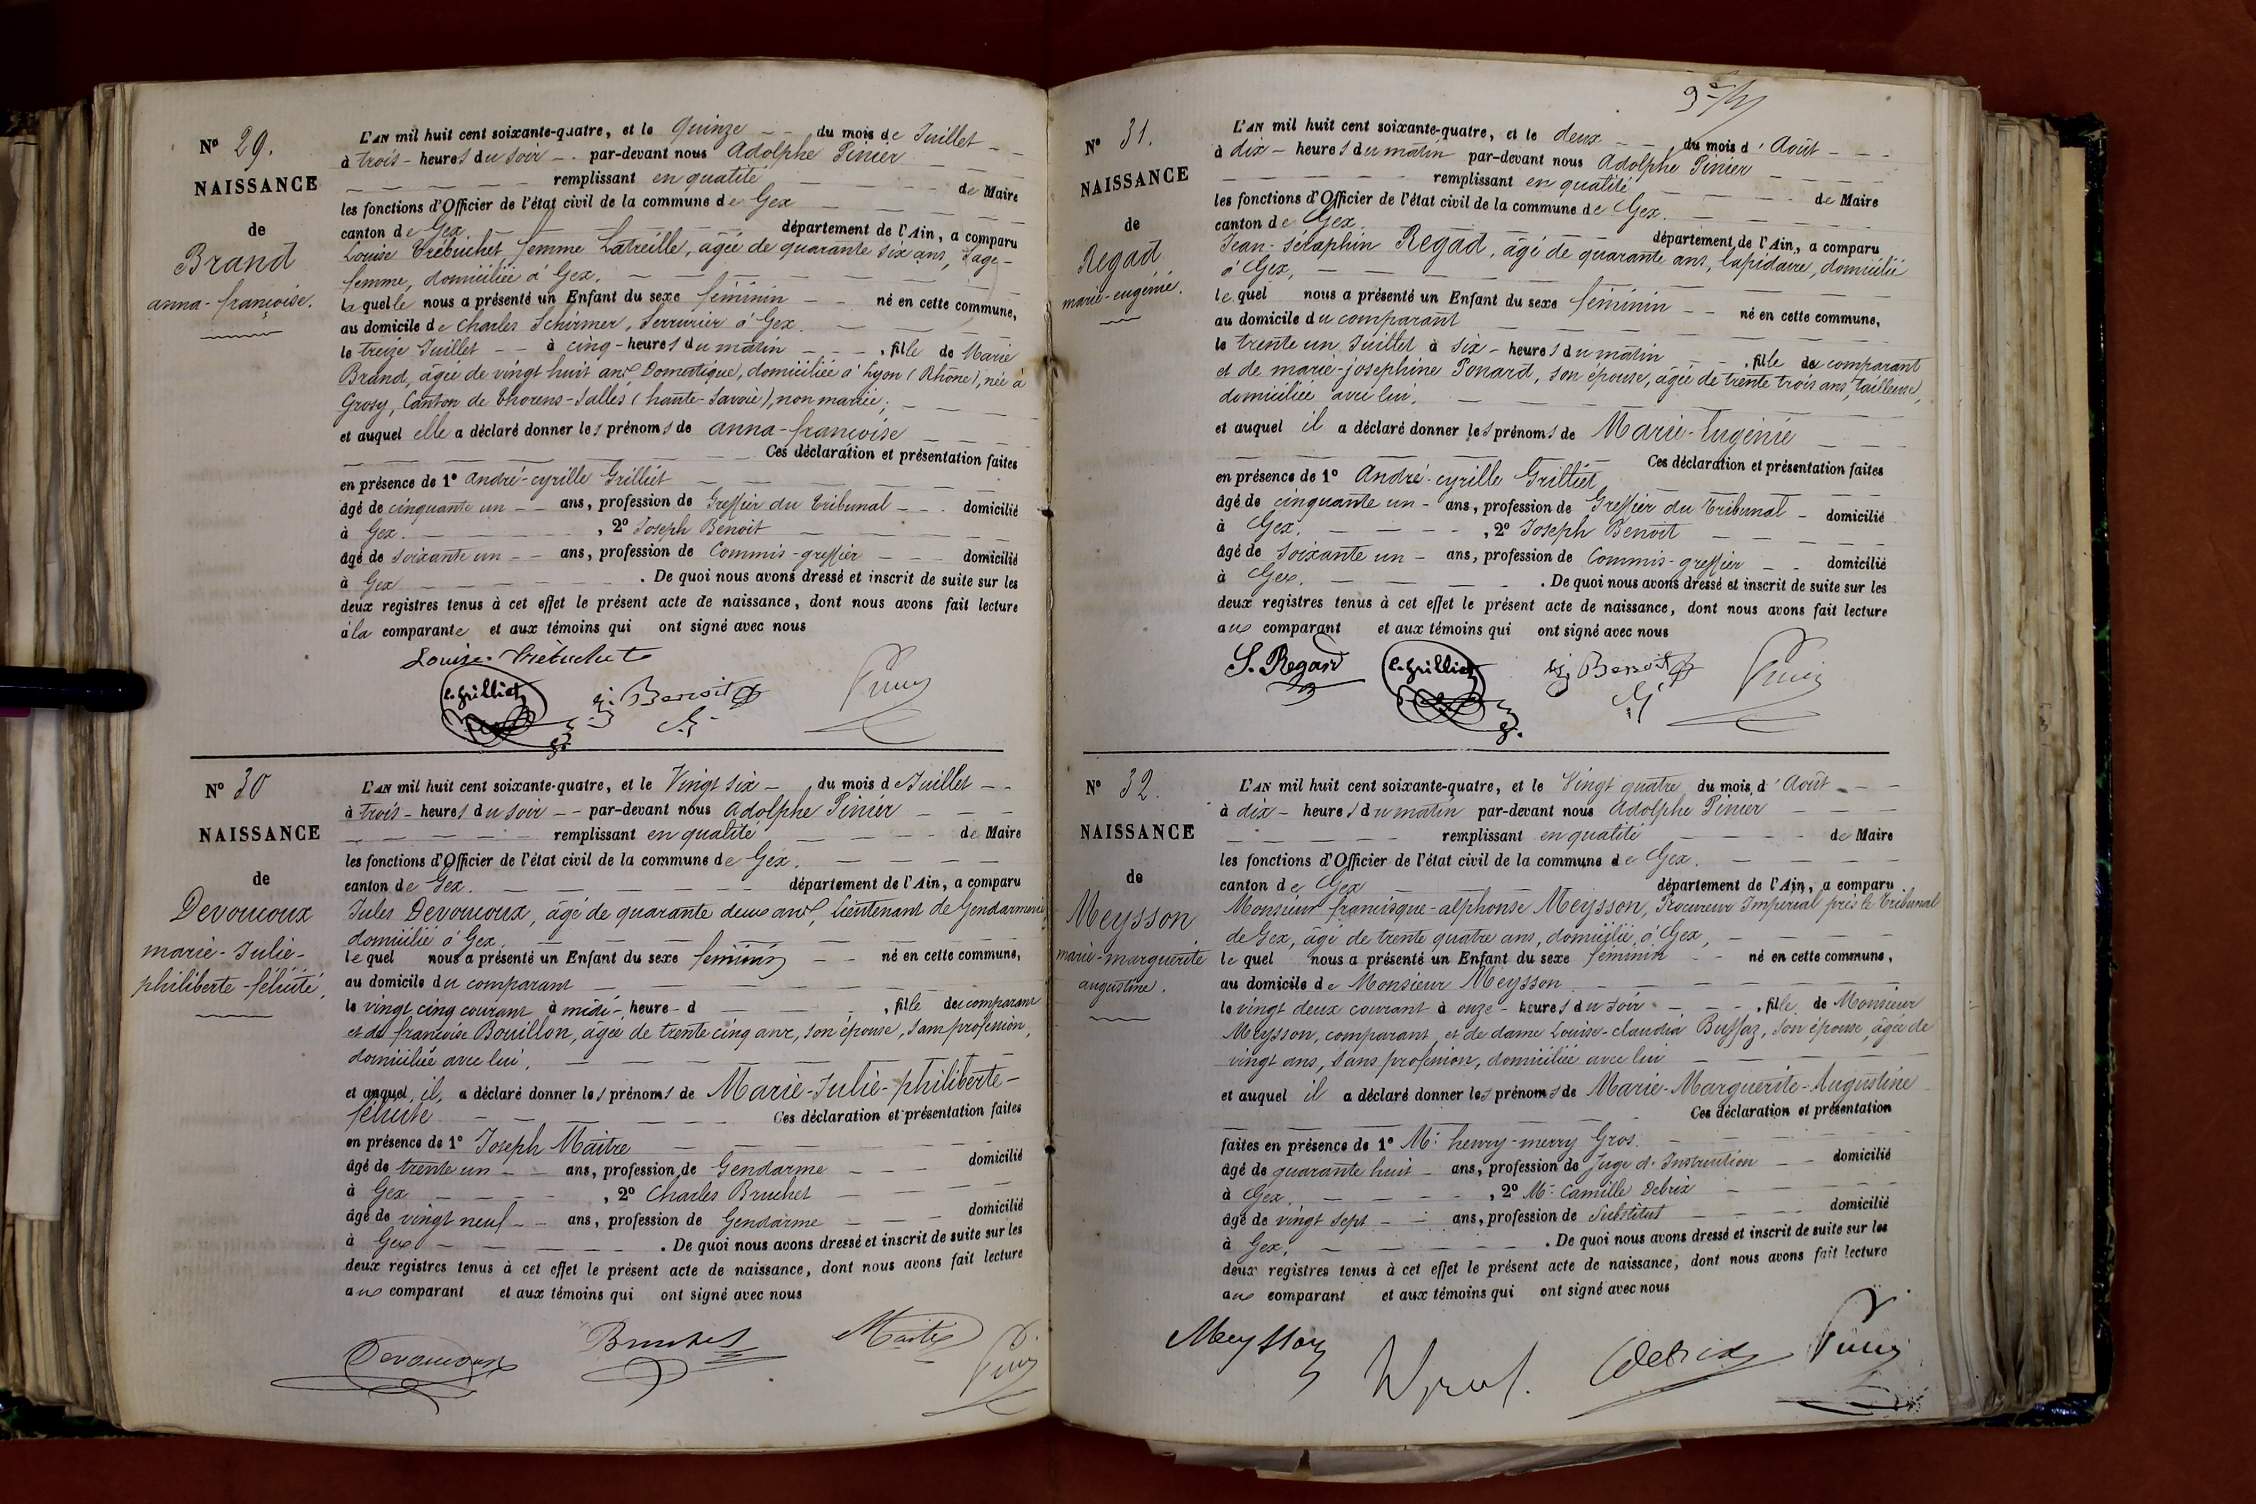 Nº 29.
NAISSANCE
de
Brand
anna-françoise.
L'AN mil huit cent soixante-quatre, et le Quinze du mois de Juillet
à trois heures du soir par-devant nous Adolphe Pinier
remplissant en qualité de Maire
les fonctions d'Officier de l'état civil de la commune de Gex
canton de Gex département de l'Ain, a comparu
Louise Trébuchet femme Latreille, âgée de quarante six ans, sage-
femme, domiciliée à Gex.
laquelle nous a présenté un Enfant du sexe féminin né en cette commune,
au domicile de Charles Schirmer, serrurier à Gex.
le treize Juillet à cinq heures du matin, fille de Marie
Brand, âgée de vingt huit ans Domestique, domiciliée à Lyon (Rhône), née à
Grosy, Canton de Thorens-Sallés (haute-Savoie), non mariée;
et auquel elle a déclaré donner les prénoms de anna-françoise
Ces déclaration et présentation faites
en présence de 1º André-cyrille Grilliet
âgé de cinquante un ans, profession de Greffier du Tribunal domicilié
à Gex. , 2º Joseph Benoit
âgé de soixante un ans, profession de Commis-greffier domicilié
à Gex . De quoi nous avons dressé et inscrit de suite sur les
deux registres tenus à cet effet le présent acte de naissance, dont nous avons fait lecture
à la comparante et aux témoins qui ont signé avec nous
Louise Trébuchet
c. Grilliet
j. Benoit
Pinier
Nº 30
NAISSANCE
de
Devoucoux
marie-Julie-
philiberte-félicité.
L'AN mil huit cent soixante-quatre, et le Vingt six du mois de Juillet
à trois heures du soir par-devant nous Adolphe Pinier
remplissant en qualité de Maire
les fonctions d'Officier de l'état civil de la commune de Gex.
canton de Gex. département de l'Ain, a comparu
Jules Devoucoux, âgé de quarante deux ans, Lieutenant de Gendarmerie
domicilié à Gex
lequel nous a présenté un Enfant du sexe féminin né en cette commune,
au domicile du comparant
le vingt cinq courant à midi, heure d , fille du comparant
et de françoise Bouillon, âgée de trente cinq ans, son épouse, sans profession,
domiciliée avec lui.
et auquel il a déclaré donner les prénoms de Marie-Julie-philiberte-
félicité Ces déclaration et présentation faites
en présence de 1º Joseph Maitre
âgé de trente un ans, profession de Gendarme domicilié
à Gex , 2º Charles Bruchet
âgé de vingt neuf ans, profession de Gendarme domicilié
à Gex . De quoi nous avons dressé et inscrit de suite sur les
deux registres tenus à cet effet le présent acte de naissance, dont nous avons fait lecture
au comparant et aux témoins qui ont signé avec nous
Devoucoux
Bruchet
Maitre
Pinier
Nº 31.
NAISSANCE
de
Regad
marie-eugénie.
L'AN mil huit cent soixante-quatre, et le deux du mois d'Août
à dix heures du matin par-devant nous Adolphe Pinier
remplissant en qualité de Maire
les fonctions d'Officier de l'état civil de la commune de Gex.
canton de Gex département de l'Ain, a comparu
Jean-Séraphin Regad, âgé de quarante ans, lapidaire, domicilié
à Gex,
lequel nous a présenté un Enfant du sexe féminin né en cette commune,
au domicile du comparant
le trente un Juillet à six heures du matin , fille du comparant
et de marie-josephine Ponard, son épouse, âgée de trente trois ans, tailleuse,
domiciliée avec lui.
et auquel il a déclaré donner les prénoms de Marie-Eugénie
Ces déclaration et présentation faites
en présence de 1º André-cyrille Grilliet
âgé de cinquante un ans, profession de Greffier du Tribunal domicilié
à Gex. , 2º Joseph Benoit
âgé de soixante un ans, profession de Commis-greffier domicilié
à Gex. . De quoi nous avons dressé et inscrit de suite sur les
deux registres tenus à cet effet le présent acte de naissance, dont nous avons fait lecture
au comparant et aux témoins qui ont signé avec nous
S. Regard
c. Grilliet
j. Benoit
Pinier
Nº 32.
NAISSANCE
de
Meysson
marie-marguerite
augustine.
L'AN mil huit cent soixante-quatre, et le Vingt quatre du mois d'Août
à dix heures du matin par-devant nous Adolphe Pinier
remplissant en qualité de Maire
les fonctions d'Officier de l'état civil de la commune de Gex.
canton de Gex département de l'Ain, a comparu
Monsieur francisque-alphonse Meysson, Procureur Impérial près le Tribunal
de Gex, âgé de trente quatre ans, domicilié à Gex,
lequel nous a présenté un Enfant du sexe féminin né en cette commune,
au domicile de Monsieur Meysson
le vingt deux courant à onze heures du soir , fille de Monsieur
Meysson, comparant, et de dame Louise-claudia Buffaz, son épouse, âgée de
vingt ans, sans profession, domiciliée avec lui
et auquel il a déclaré donner les prénoms de Marie-Marguerite-Augustine
Ces déclaration et présentation
faites en présence de 1º Mr henry-merry Gros.
âgé de quarante huit ans, profession de Juge d'Instruction domicilié
à Gex. , 2º Mr Camille Debrix
âgé de vingt sept ans, profession de Substitut domicilié
à Gex. . De quoi nous avons dressé et inscrit de suite sur les
deux registres tenus à cet effet le présent acte de naissance, dont nous avons fait lecture
au comparant et aux témoins qui ont signé avec nous
Meysson
Debrix
Pinier